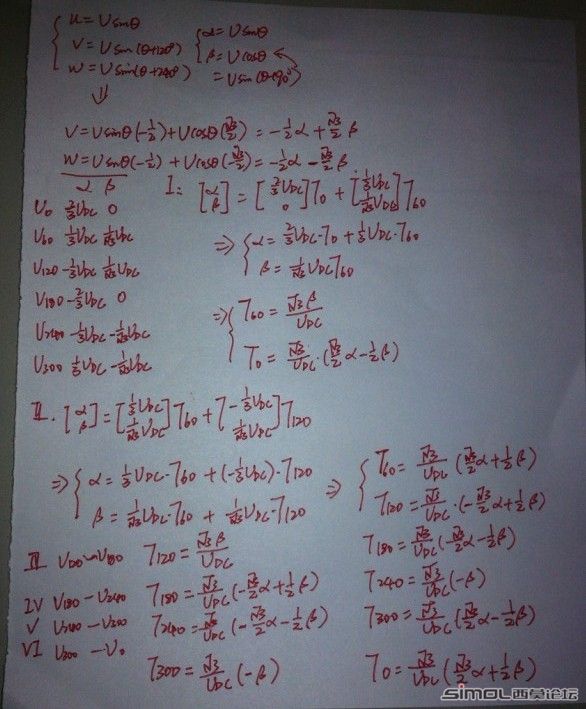 u = Usinθ
V = Usin(θ+120°)
W = Usin(θ+240°)
α = Usinθ
β = Ucosθ
= Usin(θ+90°)
⇓
V = Usinθ(-1/2) + Ucosθ(√3/2) = -1/2 α + √3/2 β
W = Usinθ(-1/2) + Ucosθ(-√3/2) = -1/2 α - √3/2 β
α β
U0 2/3 UDC 0
U60 1/3 UDC 1/√3 UDC
U120 -1/3 UDC 1/√3 UDC
U180 -2/3 UDC 0
U240 -1/3 UDC -1/√3 UDC
U300 1/3 UDC -1/√3 UDC
I: [α β] = [2/3 UDC 0] T0 + [1/3 UDC 1/√3 UDC] T60
⇒ { α = 2/3 UDC·T0 + 1/3 UDC·T60
β = 1/√3 UDC T60
⇒ { T60 = √3 β / UDC
T0 = √3/UDC · (√3/2 α - 1/2 β)
II. [α β] = [1/3 UDC 1/√3 UDC] T60 + [-1/3 UDC 1/√3 UDC] T120
⇒ { α = 1/3 UDC·T60 + (-1/3 UDC)·T120
β = 1/√3 UDC·T60 + 1/√3 UDC·T120
⇒ { T60 = √3/UDC (√3/2 α + 1/2 β)
T120 = √3/UDC · (-√3/2 α + 1/2 β)
III U120 - U180 T120 = √3 β / UDC T180 = √3/UDC (-√3/2 α - 1/2 β)
IV U180 - U240 T180 = √3/UDC (-√3/2 α + 1/2 β) T240 = √3/UDC (-β)
V U240 - U300 T240 = √3/UDC (-√3/2 α - 1/2 β) T300 = √3/UDC (√3/2 α - 1/2 β)
VI U300 - U0 T300 = √3/UDC (-β) T0 = √3/UDC (√3/2 α + 1/2 β)
SIMOL西莫论坛